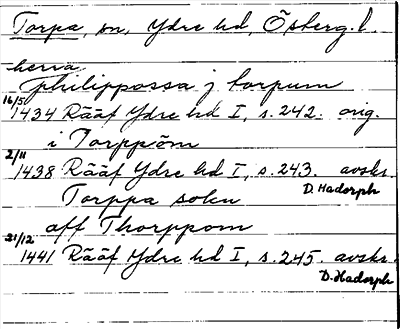 Torpa, sn, Ydre hd, Östergl.
herra
philippossa j torpum
16/5 1434 Rääf Ydre hd I, s. 242. orig.
i Torppöm
2/11 1438 Rääf Ydre hd I, s. 243. avskr.
D. Hadorph
Torppa sokn
aff Thorppom
21/12 1441 Rääf Ydre hd I, s. 245. avskr.
D. Hadorph